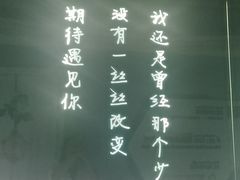 我还是曾经那个少
没有一丝丝改变
期待遇见你